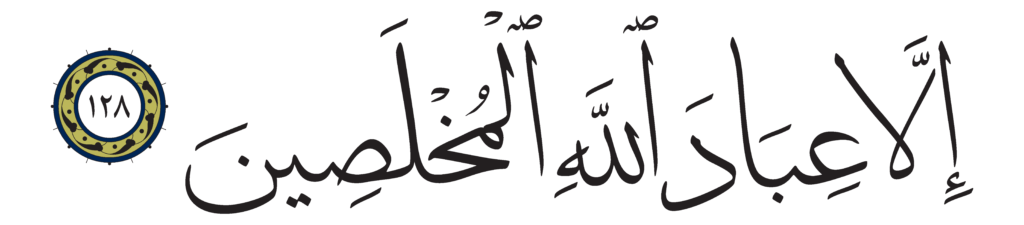 إِلَّا عِبَادَ ٱللَّهِ ٱلْمُخْلَصِينَ ١٢٨